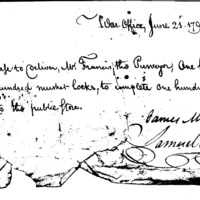 War Office, June 25th 179
to deliver, Mr. Francis, the Purveyor, One h
hundred musket locks, to complete one hundr
to the public store.
James M
Samuel